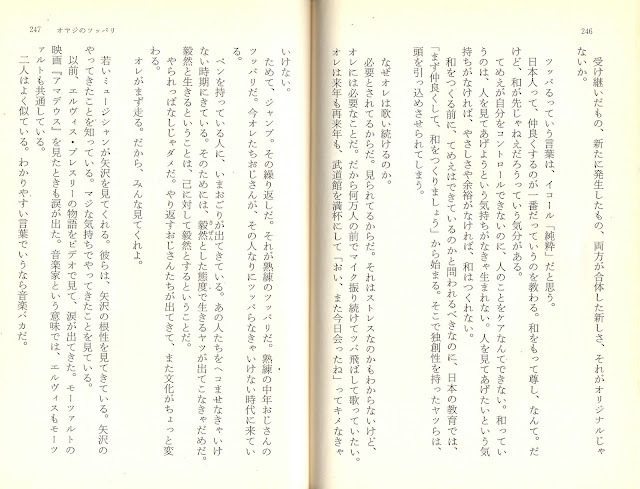 246
受け継いだもの、新たに発生したもの、両方が合体した新しさ、それがオリジナルじゃ
ないか。
ツッパるっていう言葉は、イコール「純粋」だと思う。
日本人って、仲良くするのが一番だっていうのを教わる。和をもって尊し、なんて。だ
けど、和が先じゃねえだろうっていう気分がある。
てめえが自分をコントロールできないのに、人のことをケアなんてできない。和ってい
うのは、人を見てあげようという気持ちがなきゃ生まれない。人を見てあげたいという気
持ちがなければ、やさしさや余裕がなければ、和はつくれない。
和をつくる前に、てめえはできているのかと問われるべきなのに、日本の教育では、
「まず仲良くして、和をつくりましょう」から始まる。そこで独創性を持ったヤツらは、
頭を引っ込めさせられてしまう。
なぜオレは歌い続けるのか。
必要とされてるからだ。見られてるからだ。それはストレスなのかもわからないけど、
オレには必要なことだ。だから何万人の前でマイク振り続けてツバ飛ばして歌っていたい。
オレは来年も再来年も、武道館を満杯にして「おい、また今日会ったね」ってキメなきゃ
247 オヤジのツッパリ
いけない。
ためて、ジャンプ。その繰り返しだ。それが熟練のツッパリだ。熟練の中年おじさんの
ツッパリだ。今オレたちおじさんが、その人なりにツッパらなきゃいけない時代に来てい
る。
ペンを持っている人に、いまおごりが出てきている。あの人たちをヘコませなきゃいけ
ない時期にきている。そのためには、毅然とした態度で生きるヤツが出てこなきゃだめだ。
毅然と生きるということは、己に対して毅然とするということだ。
やられっぱなしじゃダメだ。やり返すおじさんたちが出てきて、また文化がちょっと変
わる。
オレがまず走る。だから、みんな見てくれよ。
若いミュージシャンが矢沢を見てくれる。彼らは、矢沢の根性を見てきている。矢沢の
やってきたことを知っている。マジな気持ちでやってきたことを見ている。
以前、エルヴィス・プレスリーの物語をビデオで見て、涙が出てきた。モーツァルトの
映画『アマデウス』を見たときも涙が出た。音楽家という意味では、エルヴィスもモーツ
ァルトも共通している。
二人はよく似ている。わかりやすい言葉でいうなら音楽バカだ。